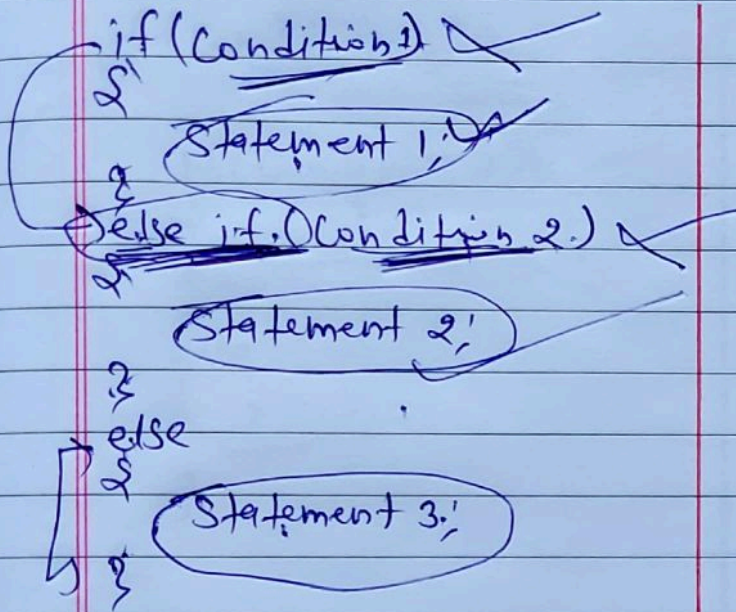 if (Condition 1)
{
Statement 1;
}
else if (Condition 2.)
{
Statement 2;
}
else
{
Statement 3;
}